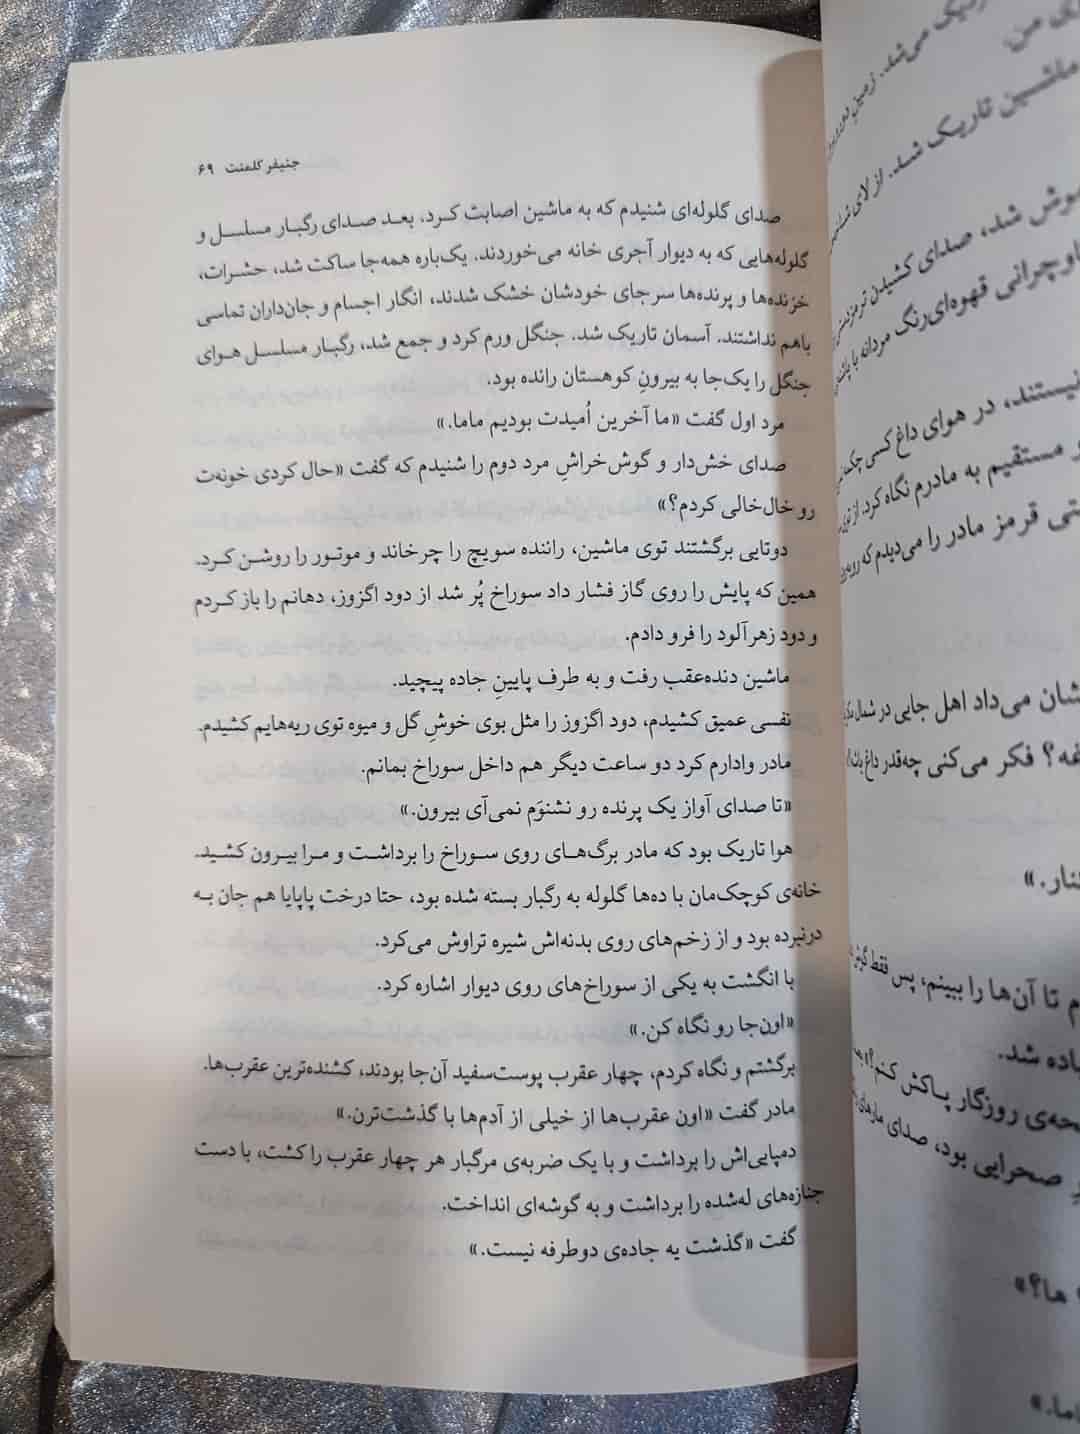 جنیفر کلمنت ۶۹
صدای گلوله‌ای شنیدم که به ماشین اصابت کرد، بعد صدای رگبار مسلسل و
گلوله‌هایی که به دیوار آجری خانه می‌خوردند. یک‌باره همه‌جا ساکت شد، حشرات،
خزنده‌ها و پرنده‌ها سرجای خودشان خشک شدند، انگار اجسام و جان‌داران تماسی
باهم نداشتند. آسمان تاریک شد. جنگل ورم کرد و جمع شد، رگبار مسلسل هوای
جنگل را یک‌جا به بیرونِ کوهستان رانده بود.
مرد اول گفت «ما آخرین اُمیدت بودیم ماما.»
صدای خش‌دار و گوش‌خراشِ مرد دوم را شنیدم که گفت «حال کردی خونه‌ت
رو خال‌خالی کردم؟»
دوتایی برگشتند توی ماشین، راننده سویچ را چرخاند و موتور را روشن کرد.
همین که پایش را روی گاز فشار داد سوراخ پُر شد از دود اگزوز، دهانم را باز کردم
و دود زهرآلود را فرو دادم.
ماشین دنده‌عقب رفت و به طرف پایینِ جاده پیچید.
نفسی عمیق کشیدم، دود اگزوز را مثل بوی خوشِ گل و میوه توی ریه‌هایم کشیدم.
مادر وادارم کرد دو ساعت دیگر هم داخل سوراخ بمانم.
«تا صدای آواز یک پرنده رو نشنوَم نمی‌آی بیرون.»
هوا تاریک بود که مادر برگ‌های روی سوراخ را برداشت و مرا بیرون کشید.
خانه‌ی کوچک‌مان با ده‌ها گلوله به رگبار بسته شده بود، حتا درخت پاپایا هم جان به
درنبرده بود و از زخم‌های روی بدنه‌اش شیره تراوش می‌کرد.
با انگشت به یکی از سوراخ‌های روی دیوار اشاره کرد.
«اون‌جا رو نگاه کن.»
برگشتم و نگاه کردم، چهار عقرب پوست‌سفید آن‌جا بودند، کشنده‌ترین عقرب‌ها.
مادر گفت «اون عقرب‌ها از خیلی از آدم‌ها با گذشت‌ترن.»
دمپایی‌اش را برداشت و با یک ضربه‌ی مرگبار هر چهار عقرب را کشت، با دست
جنازه‌های له‌شده را برداشت و به گوشه‌ای انداخت.
گفت «گذشت یه جاده‌ی دوطرفه نیست.»
می‌شد. زمین
ماشین تاریک شد. از لای
شد، صدای کشیدن ترمزدستی
قهوه‌ای‌رنگ مردانه با
نیستند، در هوای داغ کسی
مستقیم به مادرم نگاه کرد. از
قرمز مادر را می‌دیدم که
می‌داد اهل جایی در شمال
فکر می‌کنی چه‌قدر داغ
تا آن‌ها را ببینم، پس فقط
شد.
روزگار پاکش کنم؟»
صحرایی بود، صدای
ها؟»